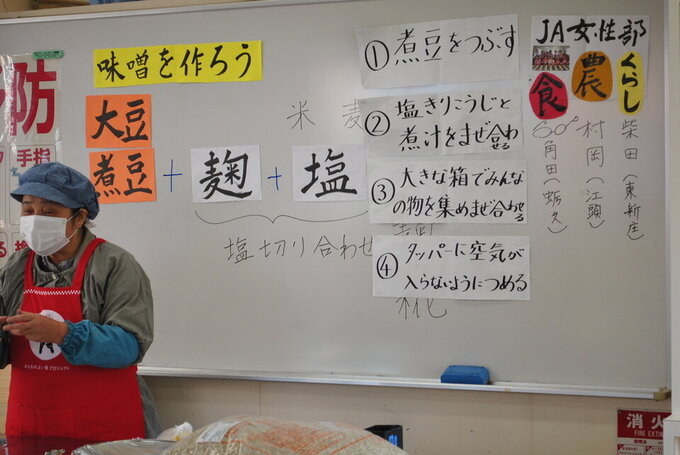 味噌を作ろう
大豆
煮豆
+
麹
+
塩
米 麦
塩切り合わせ
糀
①煮豆をつぶす
②塩きりこうじと
煮汁をまぜ合わせる
③大きな箱でみんな
の物を集めまぜ合わせる
④タッパーに空気が
入らないようにつめる
JA女性部
食
農
くらし
柴田(東新庄)
村岡(江頭)
角田(蛎久)
防
手指
みんなのよい食プロジェクト
消火
FIRE EXTIN